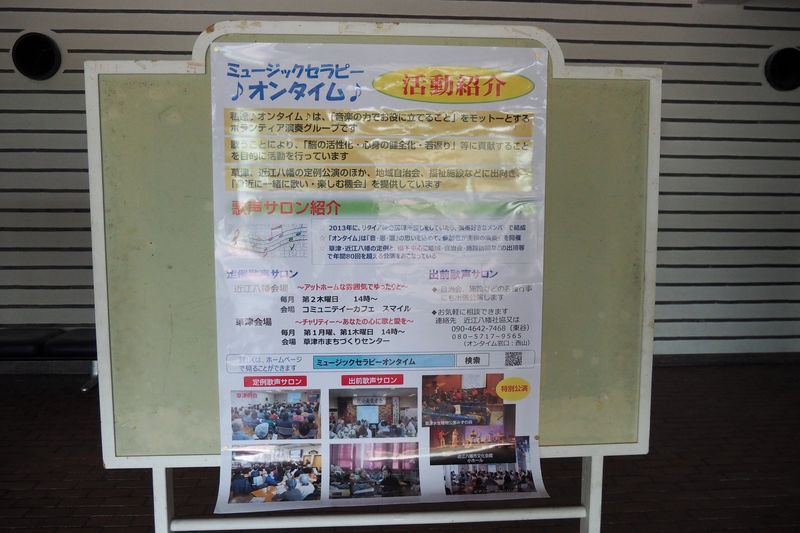 ミュージックセラピー
♪オンタイム♪
活動紹介
私達♪オンタイム♪は、「音楽の力でお役に立てること」をモットーとする
ボランティア演奏グループです
歌うことにより、「脳の活性化・心身の健全化・若返り」等に貢献すること
を目的に活動を行っています
草津、近江八幡の定例公演のほか、地域自治会、福祉施設などに出向き、
「身近に一緒に歌い・楽しむ機会」を提供しています
歌声サロン紹介
で年間80回を超える公演をおこなっている
定例歌声サロン
近江八幡会場 ～アットホームな雰囲気でゆったりと～
毎月 第2木曜日 14時～
会場 コミュニテイーカフェ スマイル
草津会場 ～チャリティー～あなたの心に歌と愛を～
毎月 第1月曜、第1木曜日 14時～
会場 草津市まちづくりセンター
出前歌声サロン
◆ 自治会、施設などの各種行事
にも出張公演します
◆お気軽に相談できます
連絡先 近江八幡社協又は
090-4642-7468（東谷）
080-5717-9565
（オンタイム窓口：西山）
詳しくは、ホームページ
で見ることができます
ミュージックセラピーオンタイム
検索
定例歌声サロン
出前歌声サロン
特別公演
草津例会
草津水生植物公園みずの森
近江八幡市文化会館
小ホール